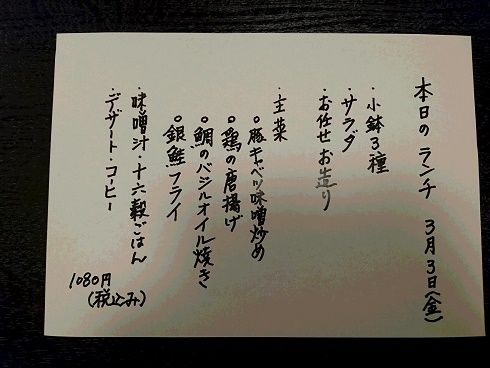 本日の ランチ 3月3日(金)
・小鉢3種
・サラダ
・お任せお造り
・主菜
○豚キャベツ味噌炒め
○鶏の唐揚げ
○鯛のバジルオイル焼き
○銀鮭フライ
・味噌汁・十六穀ごはん
・デザート・コーヒー
1080円
(税込み)